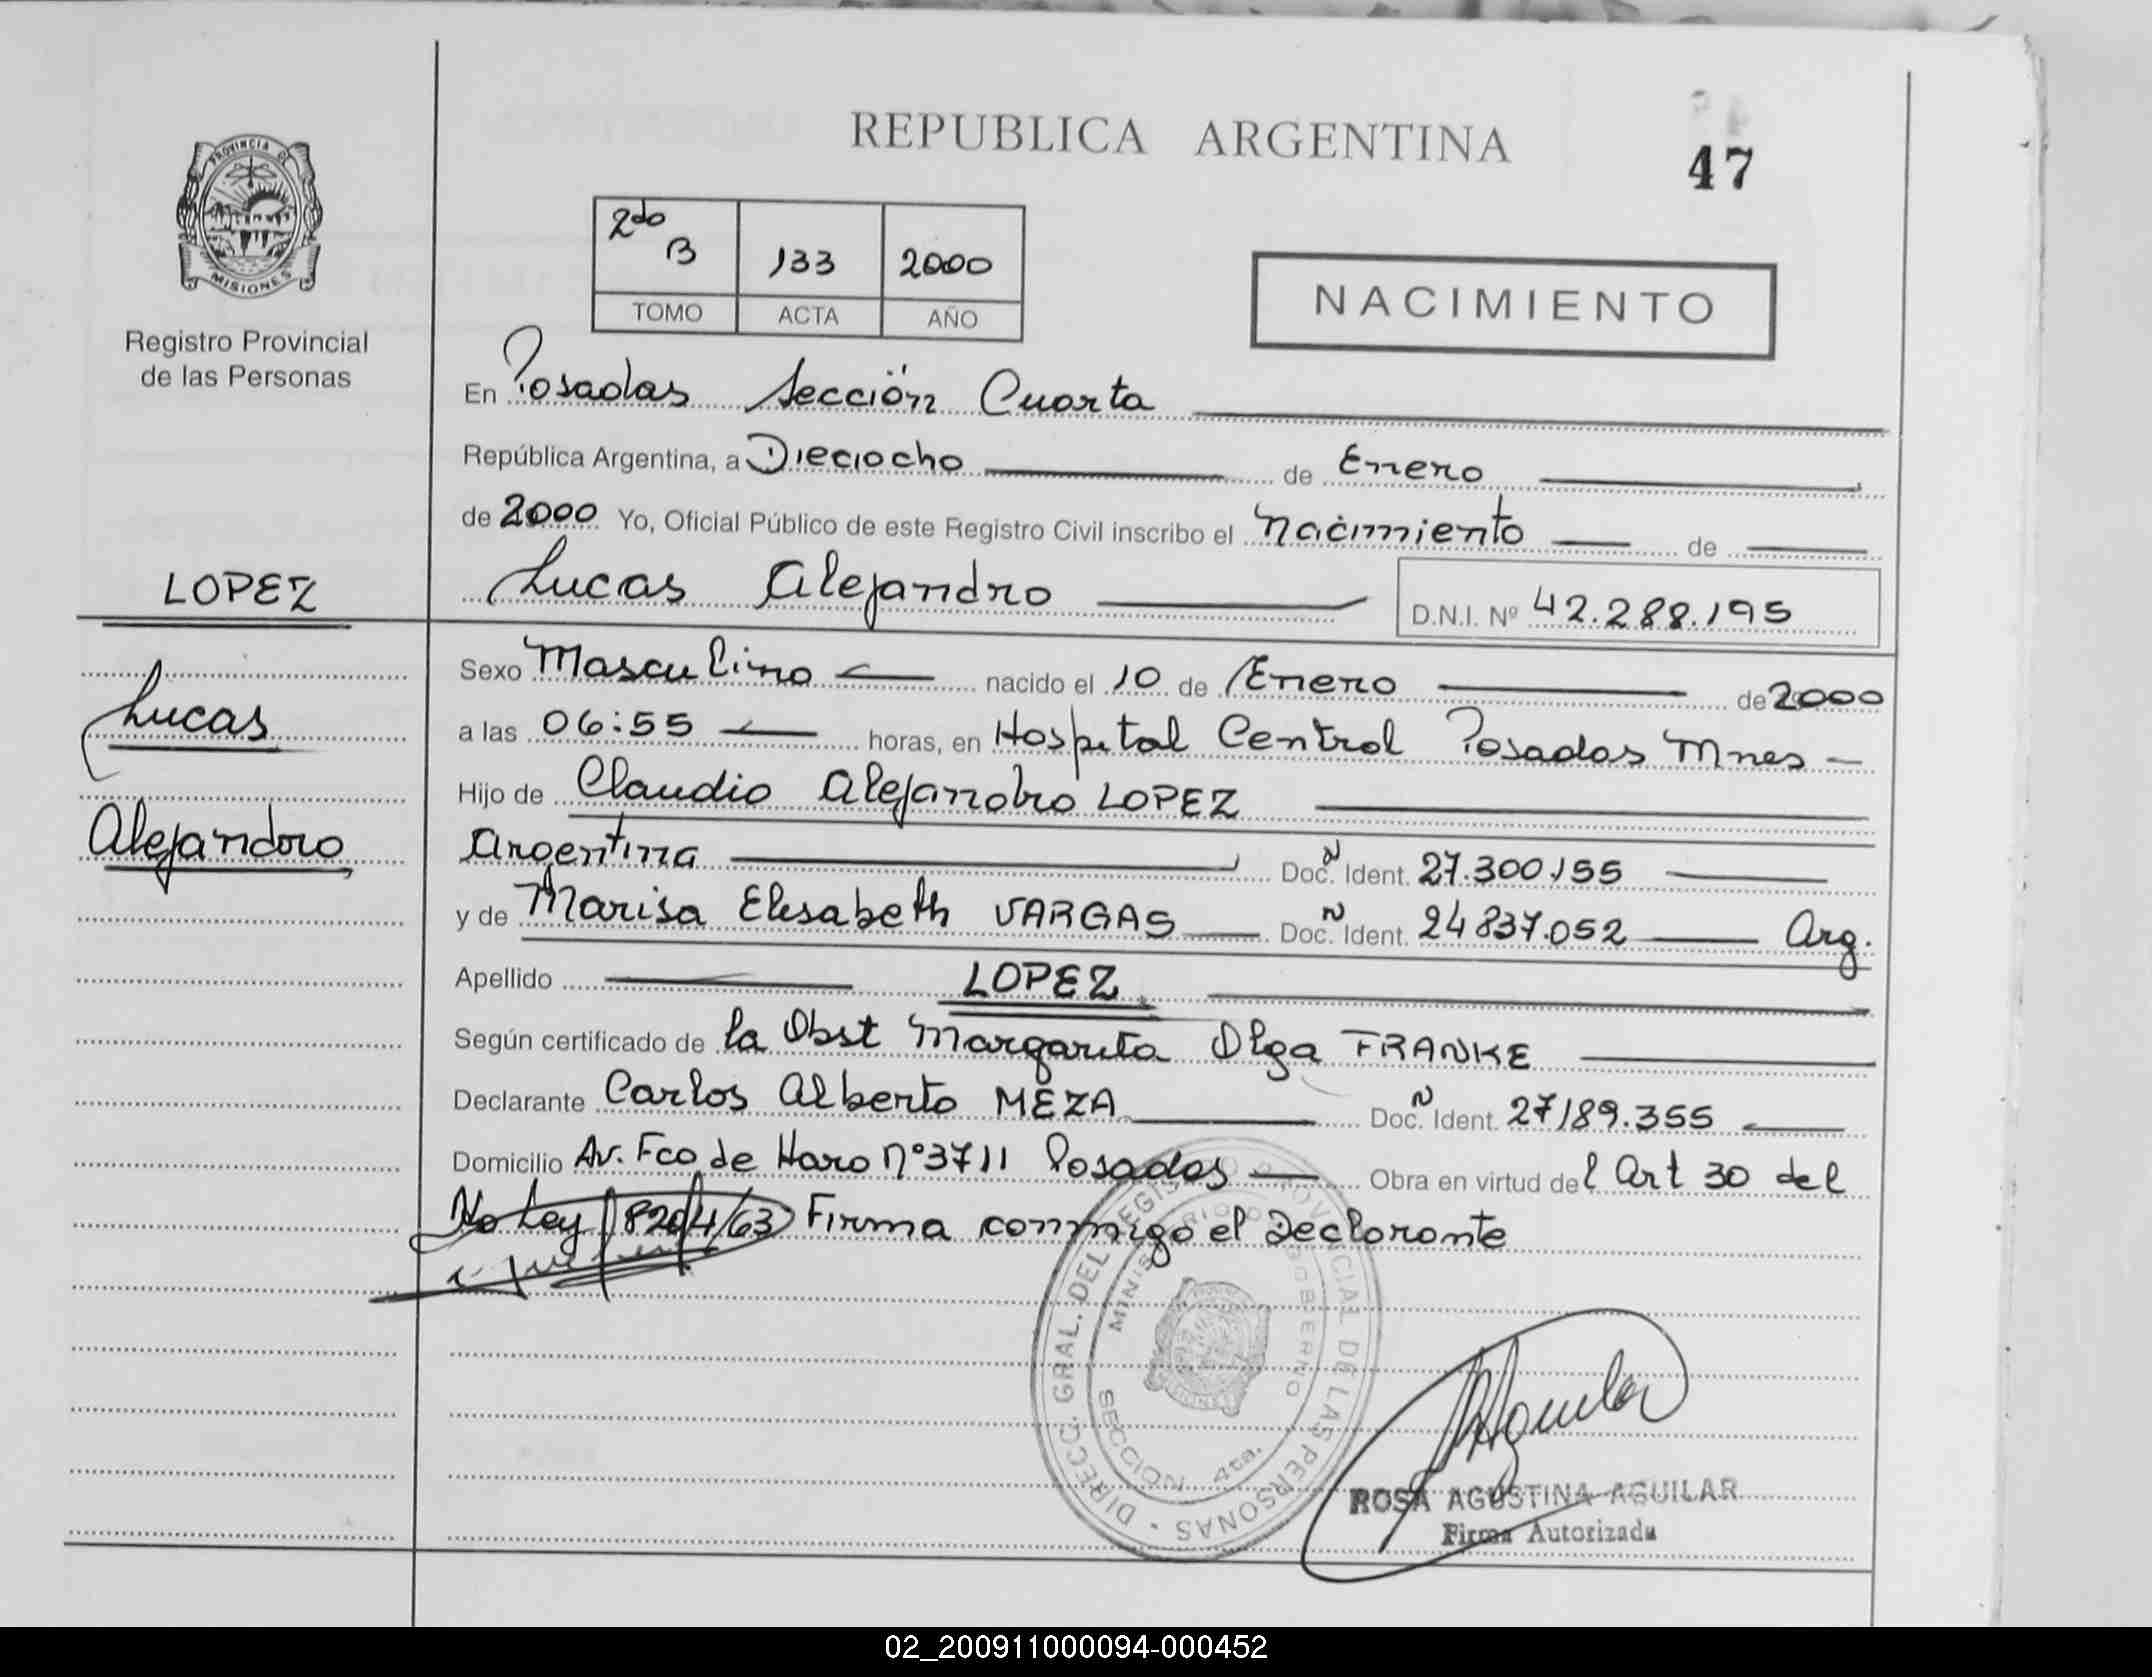 REPUBLICA ARGENTINA
47
PROVINCIA DE
MISIONES
Registro Provincial
de las Personas
2do B 133 2000
TOMO ACTA AÑO
NACIMIENTO
En Posadas Sección Cuarta
República Argentina, a Dieciocho de Enero
de 2000 Yo, Oficial Público de este Registro Civil inscribo el nacimiento de
Lucas Alejandro D.N.I. Nº 42.288.195
LOPEZ
Lucas
Alejandro
Sexo Masculino nacido el 10 de Enero de 2000
a las 06:55 horas, en Hospital Central Posadas Mnes
Hijo de Claudio Alejandro LOPEZ
Argentina Doc. Ident. 27.300.155
y de Marisa Elisabeth VARGAS Doc. Ident. 24837.052 Arg.
Apellido LOPEZ
Según certificado de la Obst Margarita Olga FRANKE
Declarante Carlos Alberto MEZA Doc. Ident. 27189.355
Domicilio Av. Fco de Haro nº 3711 Posadas Obra en virtud del Art 30 del
Ley 8204/63 Firma conmigo el Declarante
DIRECC. GRAL. DEL REGISTRO PROVINCIAL DE LAS PERSONAS
MINISTERIO DE GOBIERNO
SECCION 4ta.
ROSA AGUSTINA AGUILAR
Firma Autorizada
02_200911000094-000452